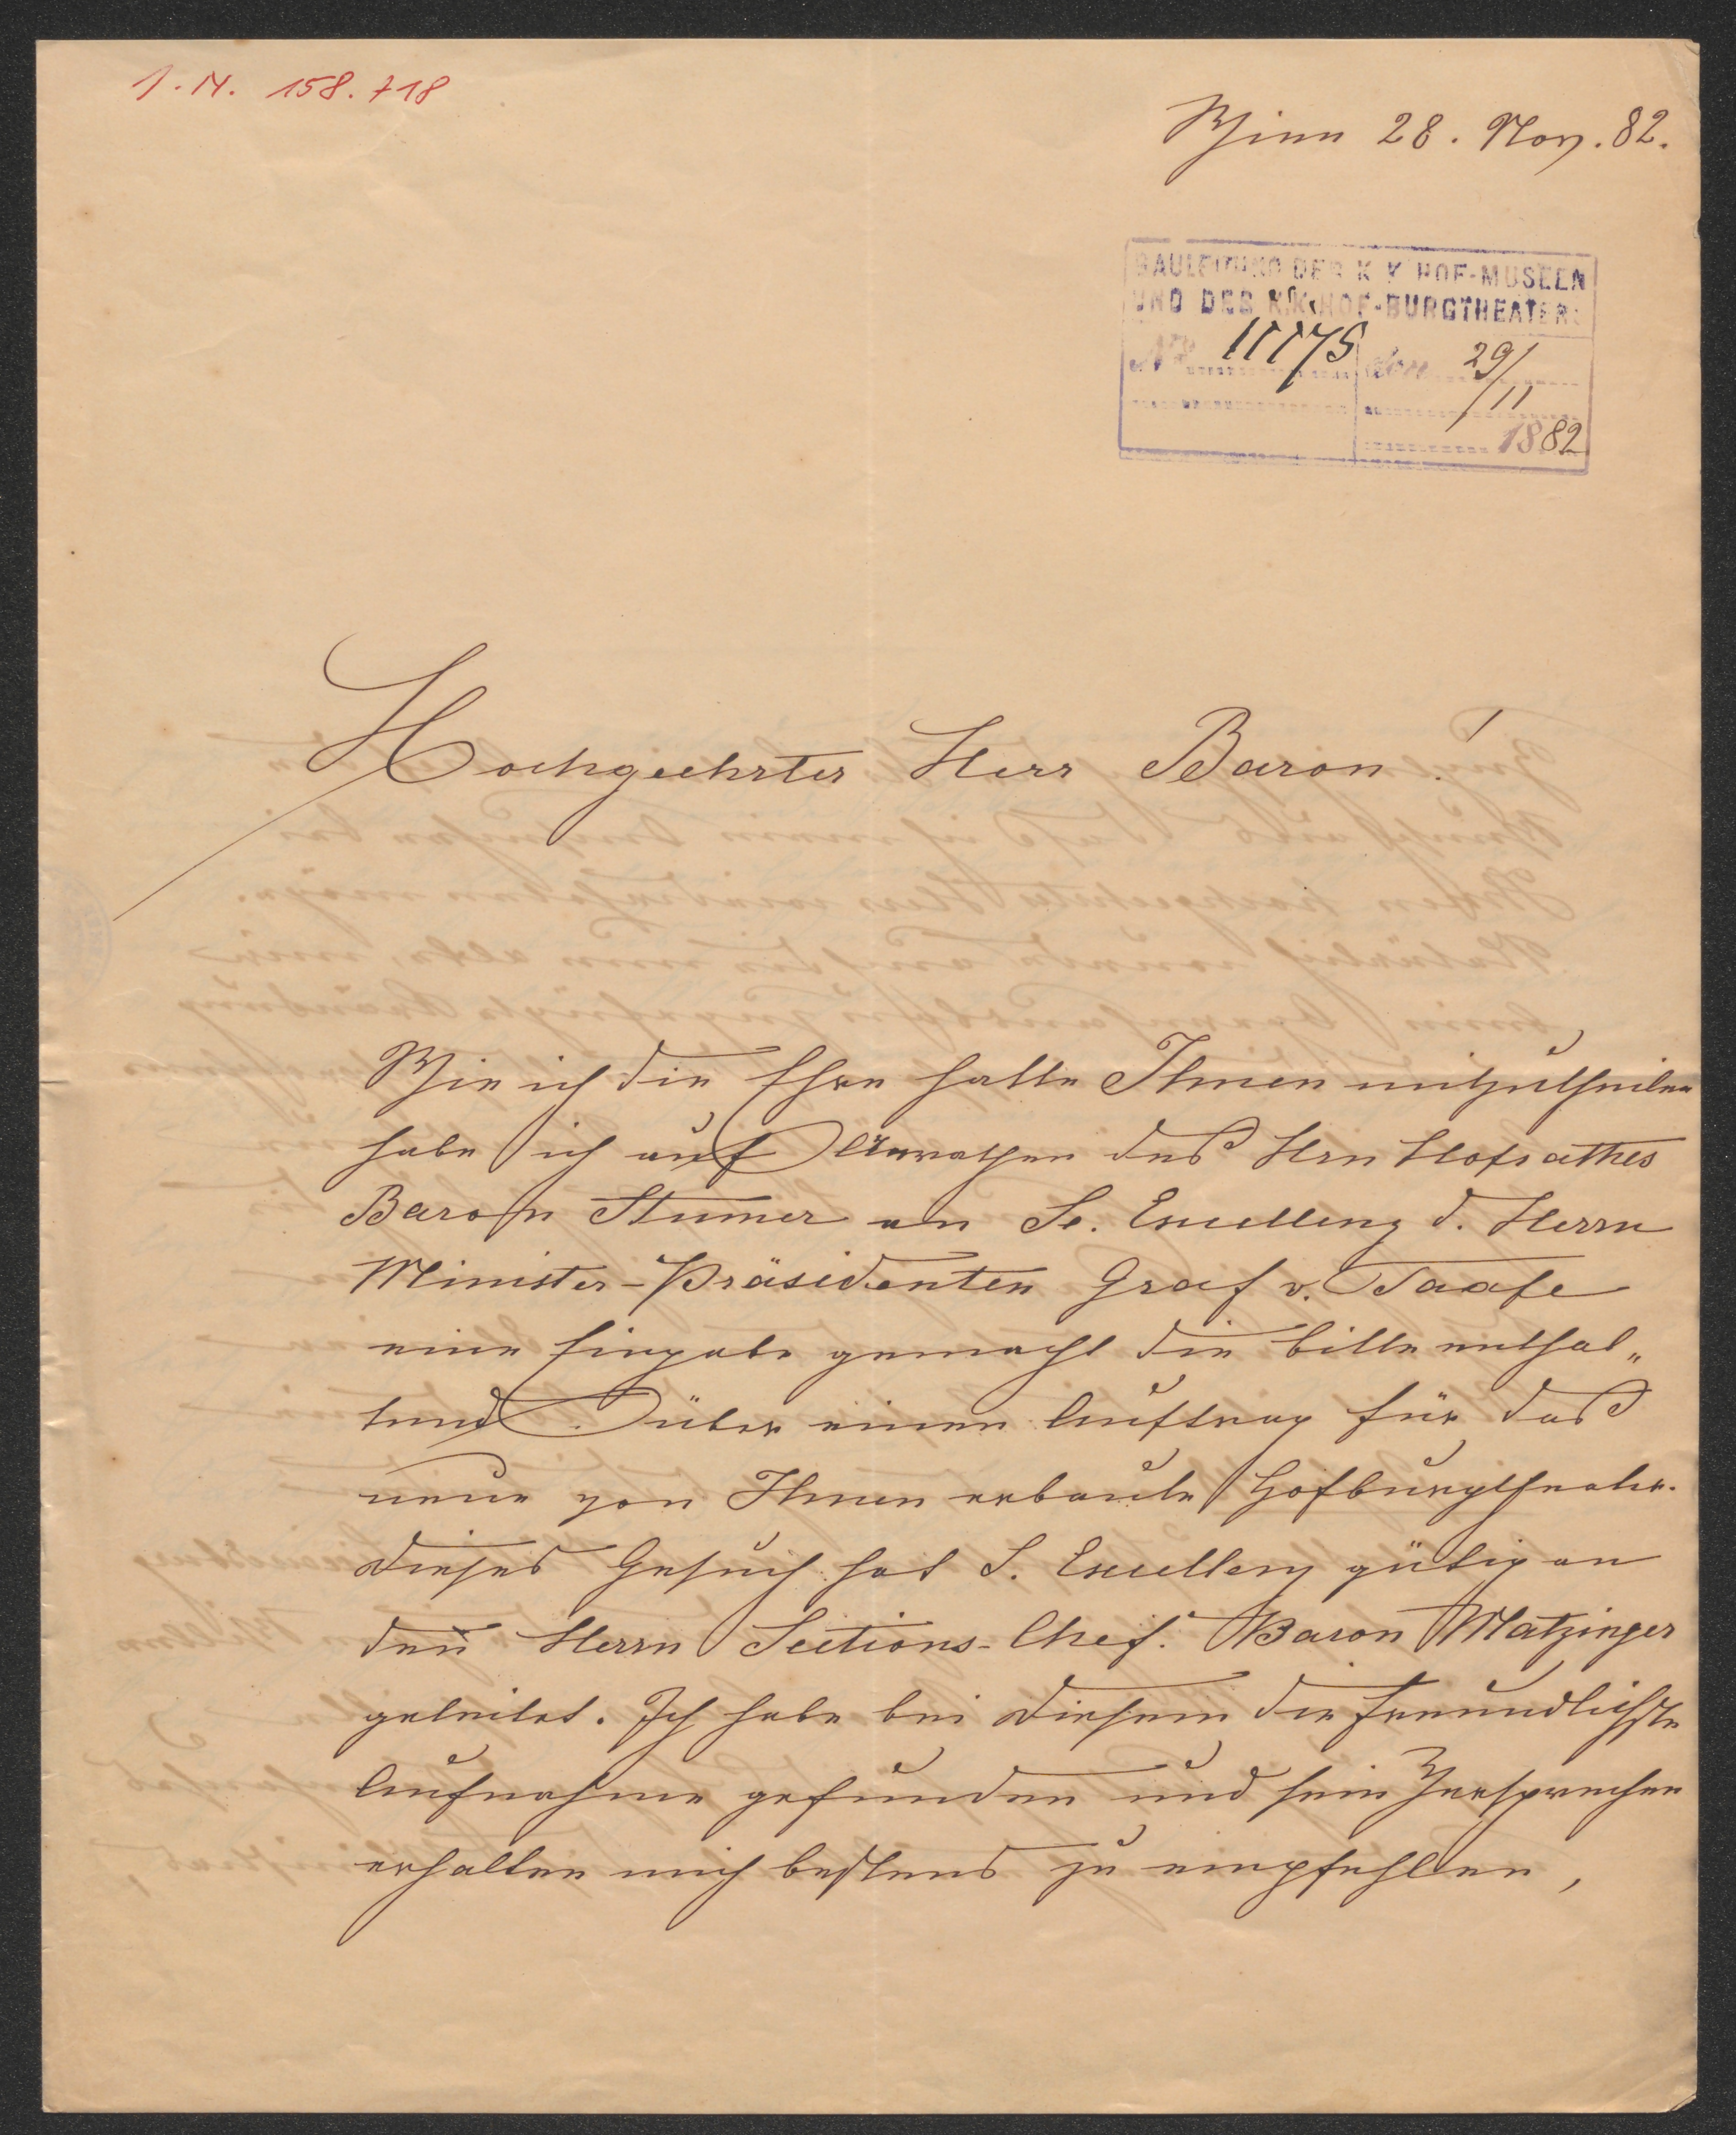 I. N. 158.718
Wien 28. Nov. 82.
BAULEITUNG DER K. K. HOF-MUSEEN
UND DES K.K. HOF-BURGTHEATERS
Nro 11175 dem 29/
11
1882
Hochgeehrter Herr Baron!
Wie ich die Ehre hatte Ihnen mitzutheilen
habe ich auf Anrathen des Hrn Hofrathes
Baron Stumer an Se. Excellenz d. Herrn
Minister-Präsidenten Graf v. Taafe
eine Eingabe gemacht die bitte enthal„
tend über einen Auftrag für das
neue von Ihnen erbaute Hofburgtheater.
dieses Gesuch hat S. Excellenz gütig an
den Herrn Sections-Chef. Baron Matzinger
geleitet. Ich habe bei diesem die freundlichste
Aufnahme gefunden und sein Versprechen
erhalten mich bestens zu empfehlen,